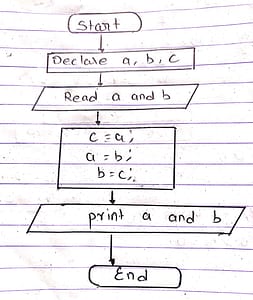 Start
Declare a, b, c
Read a and b
c = a;
a = b;
b = c;
print a and b
End